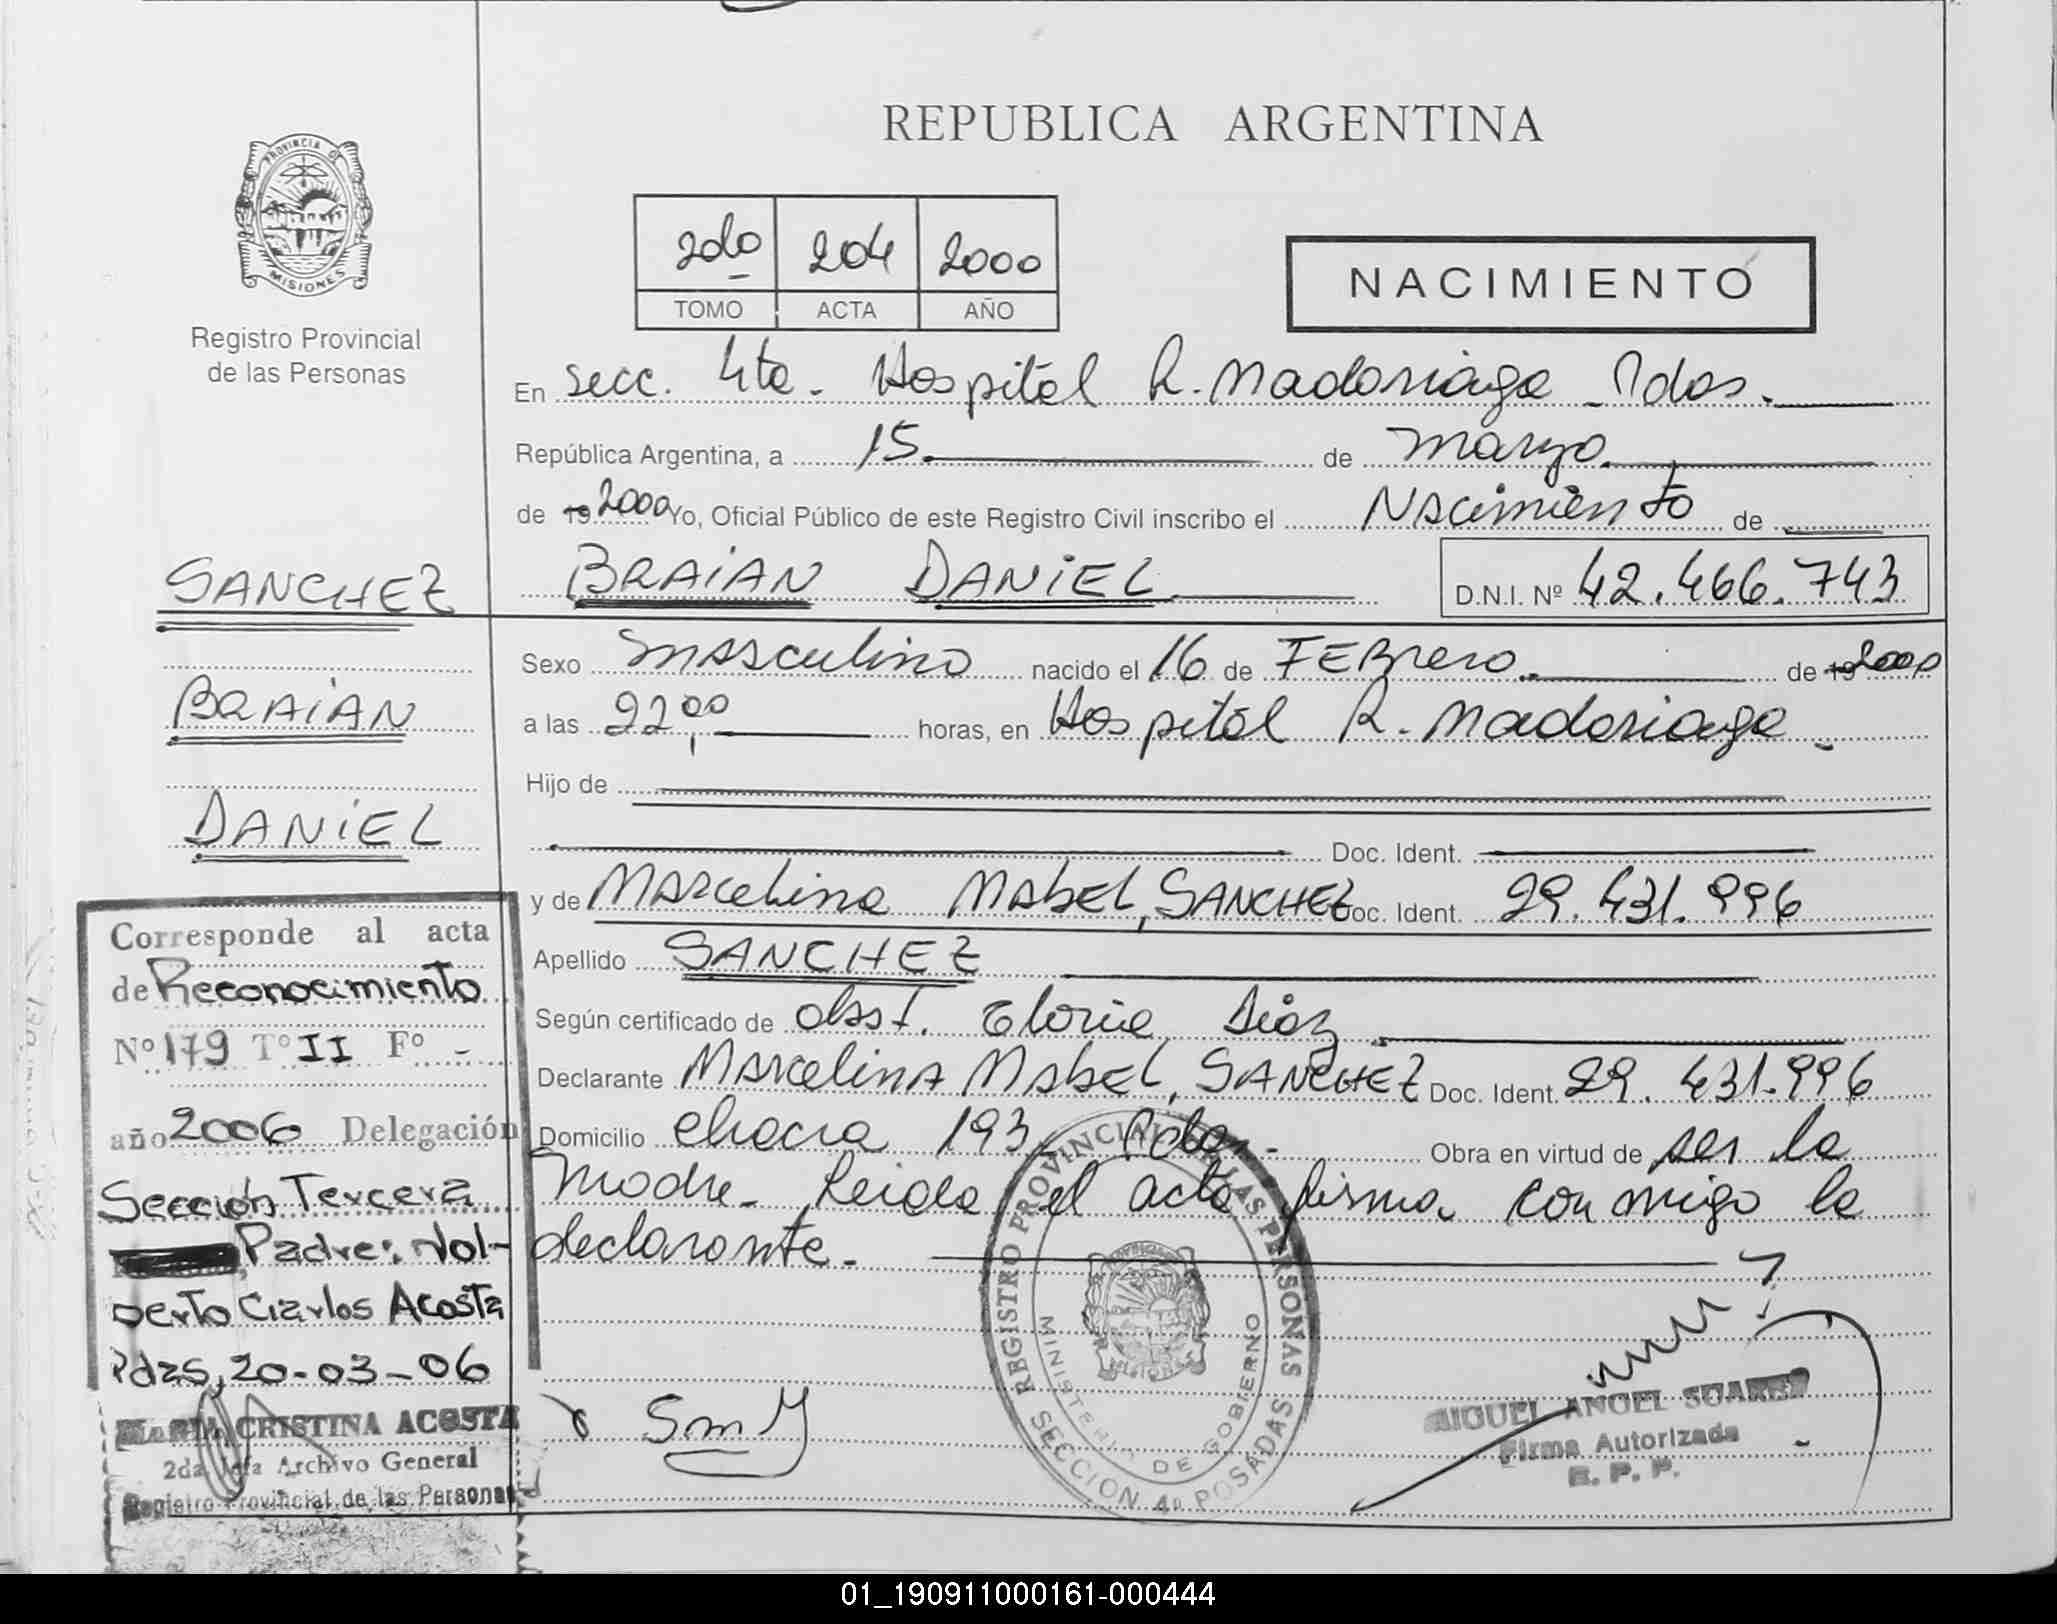 REPUBLICA ARGENTINA
PROVINCIA DE
MISIONES
Registro Provincial
de las Personas
2do 204 2000
TOMO ACTA AÑO
NACIMIENTO
En secc. 4ta. Hospital R. Madariaga - Pdas.
República Argentina, a 15 de marzo
de 19 2000 Yo, Oficial Público de este Registro Civil inscribo el Nacimiento de
BRAIAN DANIEL D.N.I. Nº 42.466.743
SANCHEZ
BRAIAN
DANIEL
Sexo masculino nacido el 16 de FEBrero de 19 2000
a las 22,00 horas, en Hospital R. Madariaga.
Hijo de
Doc. Ident.
y de Marcelina Mabel, SANCHEZ Doc. Ident. 29.431.996
Apellido SANCHEZ
Según certificado de obst. Gloria Diaz
Declarante Marcelina Mabel, SANCHEZ Doc. Ident. 29.431.996
Domicilio chacra 193 Pdas. Obra en virtud de ser la
madre. Leida el acta firma conmigo la
declarante.
Corresponde al acta
de Reconocimiento
Nº 179 Tº II Fº -
año 2006 Delegación
Sección Tercera
Padre: Nol-
berto Carlos Acosta
Pdas, 20-03-06
MARIA CRISTINA ACOSTA
2da Jefa Archivo General
Registro Provincial de las Personas
SmY
REGISTRO PROVINCIAL DE LAS PERSONAS
MINISTERIO DE GOBIERNO
SECCION 4a POSADAS
MIGUEL ANGEL SUAREZ
Firma Autorizada
R. P. P.
01_190911000161-000444